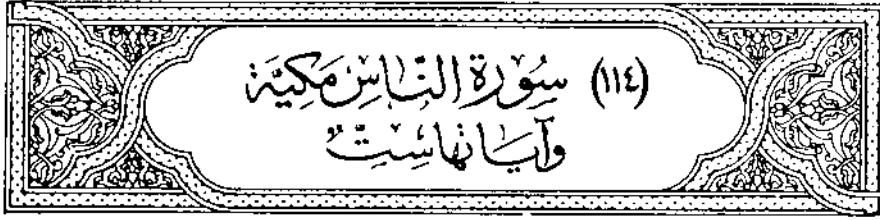 (١١٤) سُورَة النَّاسِ مَكيَّة
وَآيَاتُهَا سِتٌّ